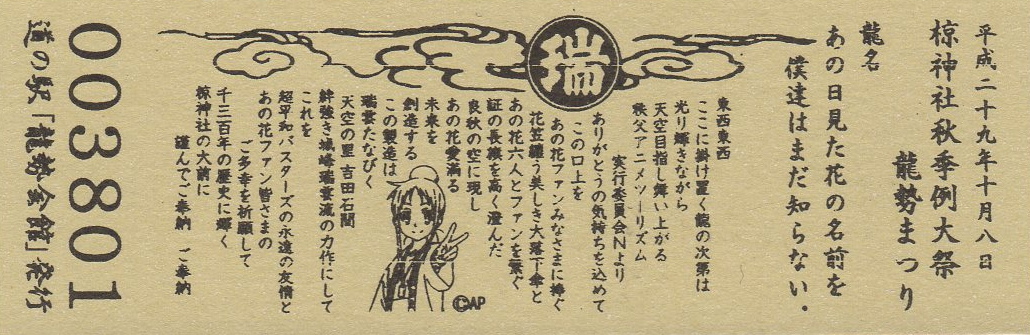 平成二十九年十月八日
椋神社秋季例大祭
龍勢まつり
龍名
あの日見た花の名前を
僕達はまだ知らない。
瑞
東西東西
ここに掛け置く龍の次第は
光り輝きながら
天空目指し舞い上がる
秩父アニメツーリズム
実行委員会Nより
ありがとうの気持ちを込めて
この口上を
あの花ファンみなさまに捧ぐ
花笠纏う美しき大落下傘と
あの花六人とファンを繋ぐ
証の長旗を高く澄んだ
良秋の空に現し
あの花愛満る
未来を
創造する
この製造は
瑞雲たなびく
天空の里吉田石間
絆強き城峰瑞雲流の力作にして
これを
超平和バスターズの永遠の友情と
あの花ファン皆さまの
ご多幸を祈願して
千三百年の歴史に輝く
椋神社の大前に
謹んでご奉納 ご奉納
©AP
003801
道の駅「龍勢会館」発行